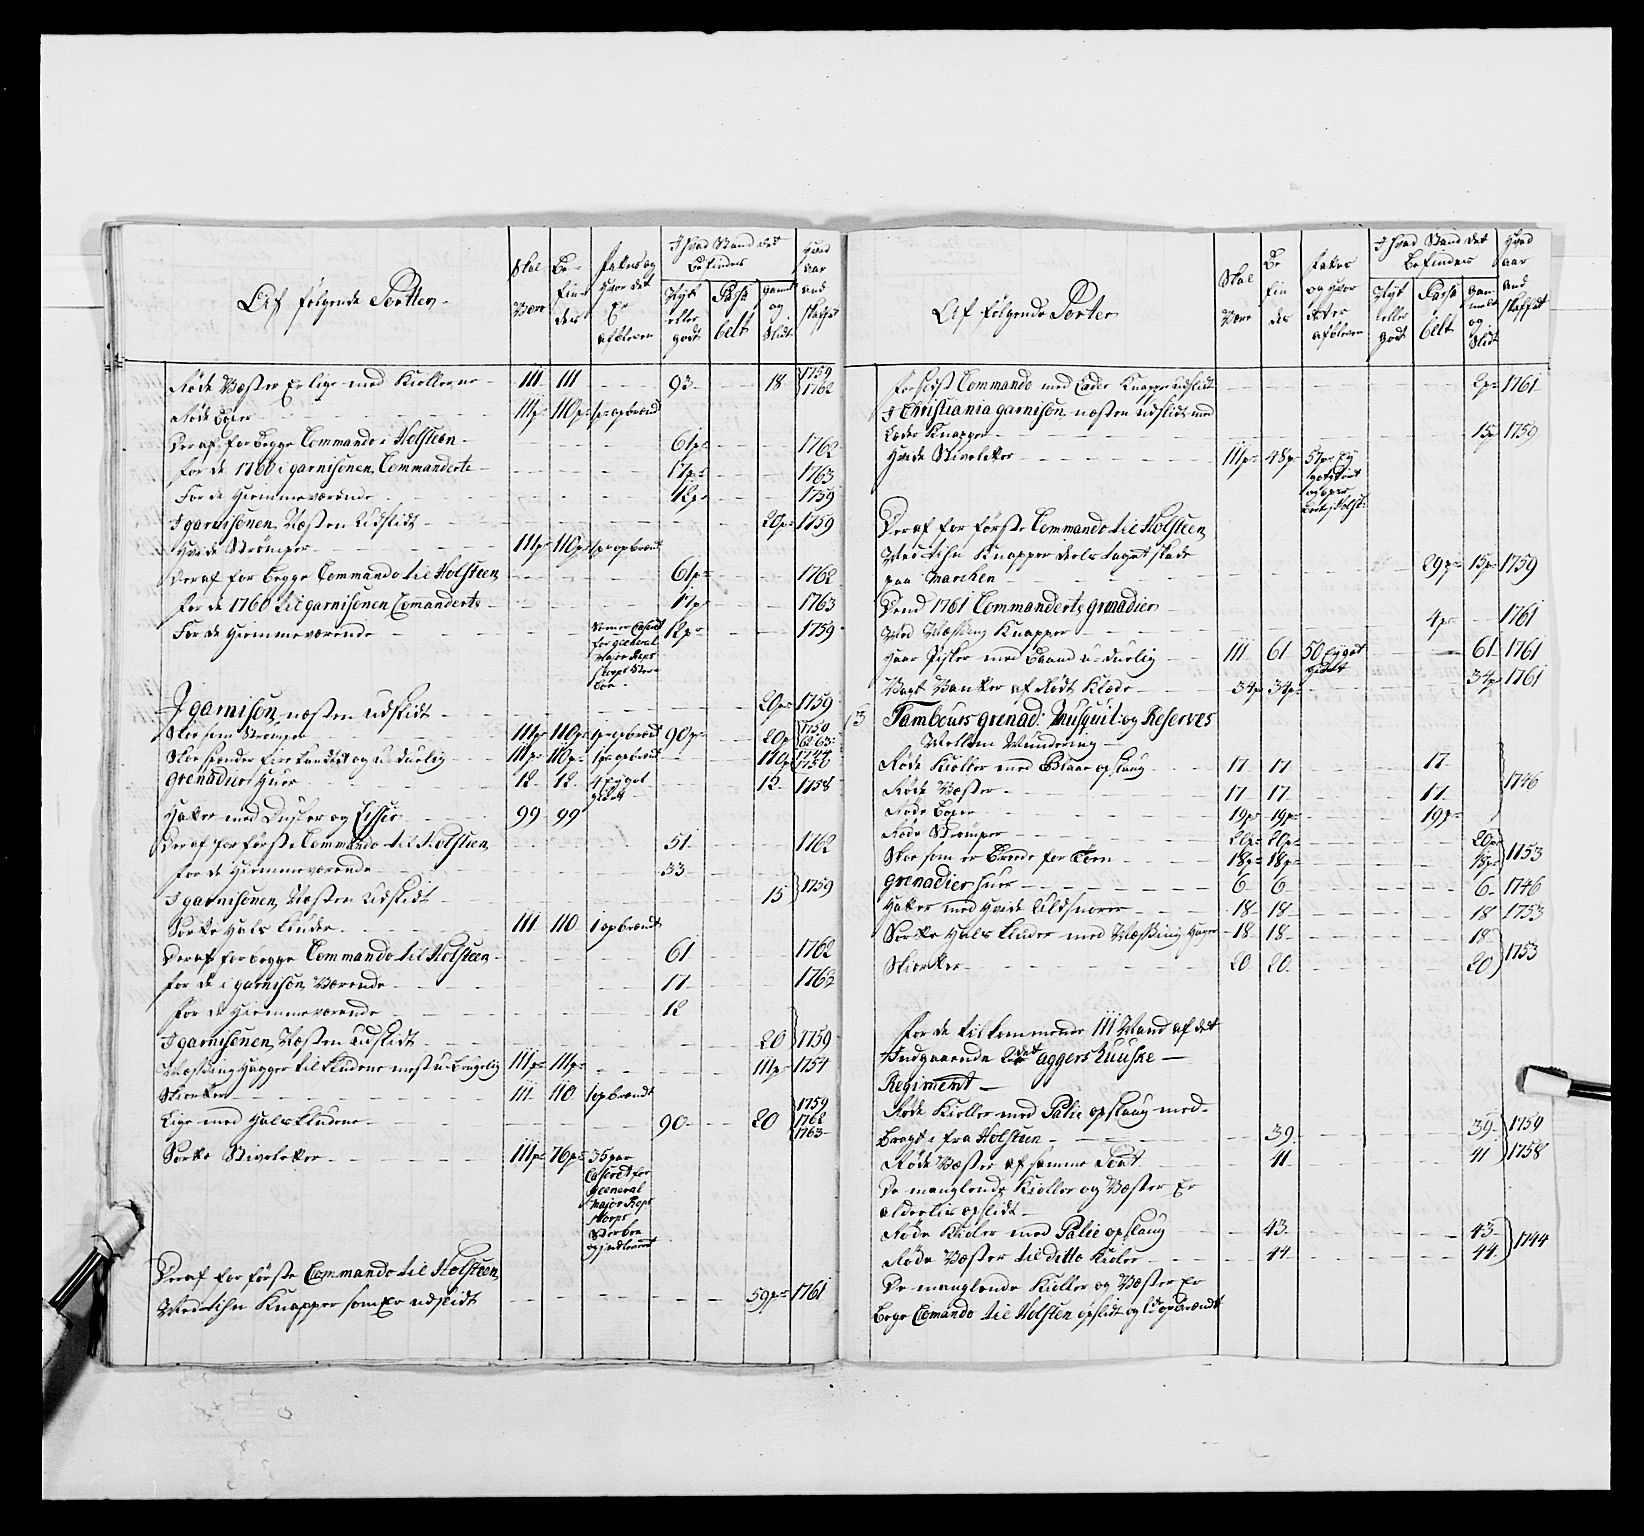 Af følgende Sorter
Skal Være
Befindes
Fattes og hvor det Er afbleven
I hvad Stand det befindes
Nyt eller godt
Passabelt
gamelt og Slidt
Hvad aar andskaffet
Røde Væster Er lige med Kiollerne 111 111 93 18 1759 1762
Røde boxer 111p 110p 1p opbrændt
Deraf for begge Commando i Holsteen 61p 1762
for de 1760 i garnisonen Commanderte 17p 1763
For de Hiemmeværende 12p 1759
I garnisonen Næsten Udslidt 20p 1759
Hvide Strømper 111p 110p 1p opbrændt
Deraf for begge Commando til Holsteen 61p 1762
for de 1760 til garnisonen Comanderte 17p 1763
For de Hiemmeværende 12p 1759
I garnison næsten Udslidt 20p 1759
Skoe som Strømper 111p 110p 1p opbrændt 90p 20p 1759 62 63
Skoe spænder firekandet og u-duelig 111p 110p 1p opbrændt 110p 1744 1750
Grenadier Huer 12 12 12 1758
Hatter med Dusker og Litser 99 99
Deraf for første Commando til Holsteen 51 1762
for de Hiemmeværende 33
I garnisonen Næsten Udslidt 15 1759
Sorte Hals Klude 111 110 1 opbrændt
Deraf for begge Commando til Holsteen 61 1762
for de i garnison Værende 17 1763
for de Hiemmeværende 12
I garnisonen Næsten Udslidt 20 1759
Mæssing Hagger til Kludene mest u-brugelig 111p 111p 111p 1754
Skiorter 111 110 1 opbrændt
Lige med Hals Kludene 90 20 1759 1762 1763
Sorte Stiveletter 111p 76p 35 par Casseret for General Major Reps Korps
Deraf for første Commando til Holsteen
Med tihn Knapper som Er udslidt 59p 1761
Af følgende Sorter
Skal Være
Befindes
Fattes og hvor det Er afbleven
I hvad Stand det befindes
Nyt eller godt
Passabelt
Gammelt og Slidt
Hvad aar andskaffet
for sidst Commando med Læder Knapper udslidt 2p 1761
I Christiania garnison næsten udslidt med
Læder Knapper 15p 1759
Hvide Stiveletter 111p 48p
Deraf for første Commando til Holsteen
Med tihn Knapper dels taget skade
paa Marchen 29p 15p 1759
Dend 1761 Commanderte Grenadier
Med Mæssing Knapper 4p 1761
Haar Pisker med Baand u-duelig 111 61 50 Ey godt giedt 61 1761
Vagt Vanter af Rødt Klæde 34p 34p 34p 1761
3 Tambours grenad: Musquet: og Reserves
Mellem Mundering
Røde Kioller med Blaae opslaug 17 17 17 1746
Røde Væster 17 17 17
Røde boxer 19p 19p 19p
Røde Strømper 20p 20p 20p
Skoe som er brede for Taaen 18p 18p 18p 1753
Grenadier Huer 6 6 6 1746
Hatter med Hvide Uldsnorer 18 18 18 1753
Sorte Hals Kluder med Mæssing Hager 18 18 18
Skiorter 20 20 20 1753
For de tilkommende 111 Mand af det
Indgaaende Aggershuuske
Regiment
Røde Kioller med Palie opslaug med-
bragt i fra Holsteen 39 39 1759
Røde Væster af samme Sort 41 41 1758
De manglende Kioller og Væster Er
aldeeles opslidt
Røde Kioler med Palie opslaug 43 43
Røde Væster til ditto Kioler 44 44 1744
De manglende Kioller og Væster Er
Bege Comando til Holsten opslidt og 1 opbrændt